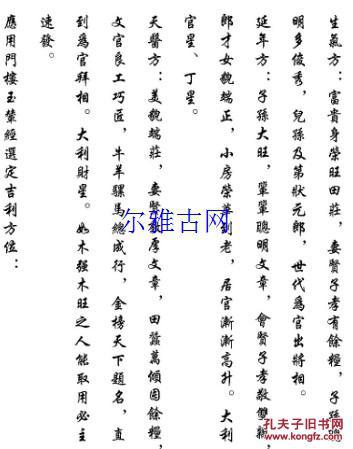 生氣方：富貴身榮旺田莊，妻賢子孝有餘糧，子孫聰
明多俊秀，兒孫及第狀元郎，世代為官出將相。
延年方：子孫大旺，輩輩聰明文章，會賢子孝敬雙親，
郎才女貌端正，小房榮華到老，居官漸漸高升。大利
官星、丁星。
天醫方：美貌端莊，妻賢敦厚文章，田蠶萬傾囤餘糧，
文官良工巧匠，牛羊騾馬總成行，金榜天下題名，直
到為官拜相。大利財星。如木强木旺之人能取用必主
速發。
應用門樓玉輦經選定吉利方位：
尔雅古网
孔夫子旧书网